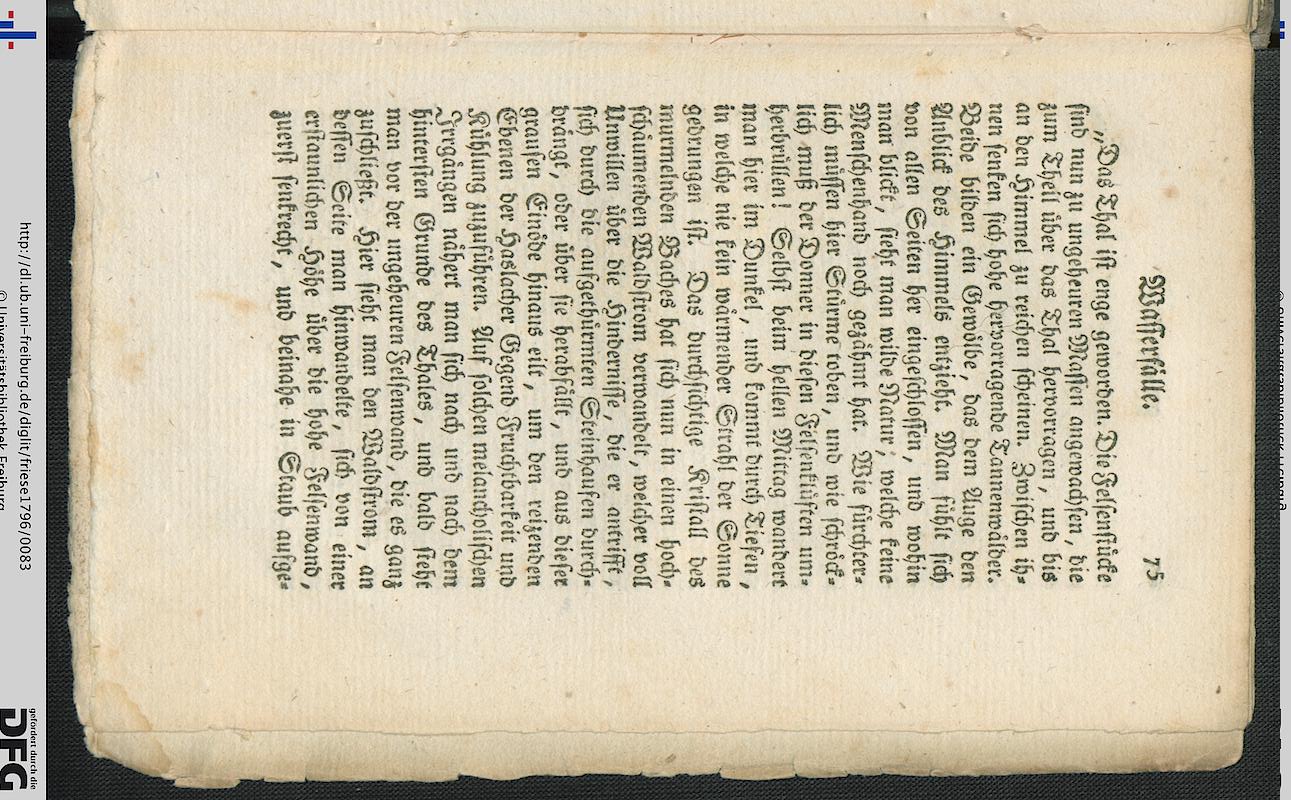 Wasserfälle. 75
„Das Thal ist enge geworden. Die Felsenstücke
sind nun zu ungeheuren Massen angewachsen, die
zum Theil über das Thal hervorragen, und bis
an den Himmel zu reichen scheinen. Zwischen ih-
nen senken sich hohe hervorragende Tannenwälder.
Beide bilden ein Gewölbe, das dem Auge den
Anblick des Himmels entzieht. Man fühlt sich
von allen Seiten her eingeschlossen, und wohin
man blickt, sieht man wilde Natur, welche keine
Menschenhand noch gezähmt hat. Wie fürchter-
lich müssen hier Stürme toben, und wie schröck-
lich muß der Donner in diesen Felsenklüften um-
herbrüllen! Selbst beim hellen Mittag wandert
man hier im Dunkel, und kommt durch Tiefen,
in welche nie kein wärmender Strahl der Sonne
gedrungen ist. Das durchsichtige Kristall des
murmelnden Baches hat sich nun in einen hoch-
schäumenden Waldstrom verwandelt, welcher voll
Unwillen über die Hindernisse, die er antrifft,
sich durch die aufgethürmten Steinhaufen durch-
drängt, oder über sie herabfällt, und aus dieser
grausen Einöde hinaus eilt, um den reizenden
Ebenen der Haslacher Gegend Fruchtbarkeit und
Kühlung zuzuführen. Auf solchen melancholischen
Irrgängen nähert man sich nach und nach dem
hintersten Grunde des Thales, und bald steht
man vor der ungeheuren Felsenwand, die es ganz
zuschließt. Hier sieht man den Waldstrom, an
dessen Seite man hinwandelte, sich von einer
erstaunlichen Höhe über die hohe Felsenwand,
zuerst senkrecht, und beinahe in Staub aufge-
http://dl.ub.uni-freiburg.de/diglit/friese1796/0083
© Universitätsbibliothek Freiburg
gefördert durch die
DFG